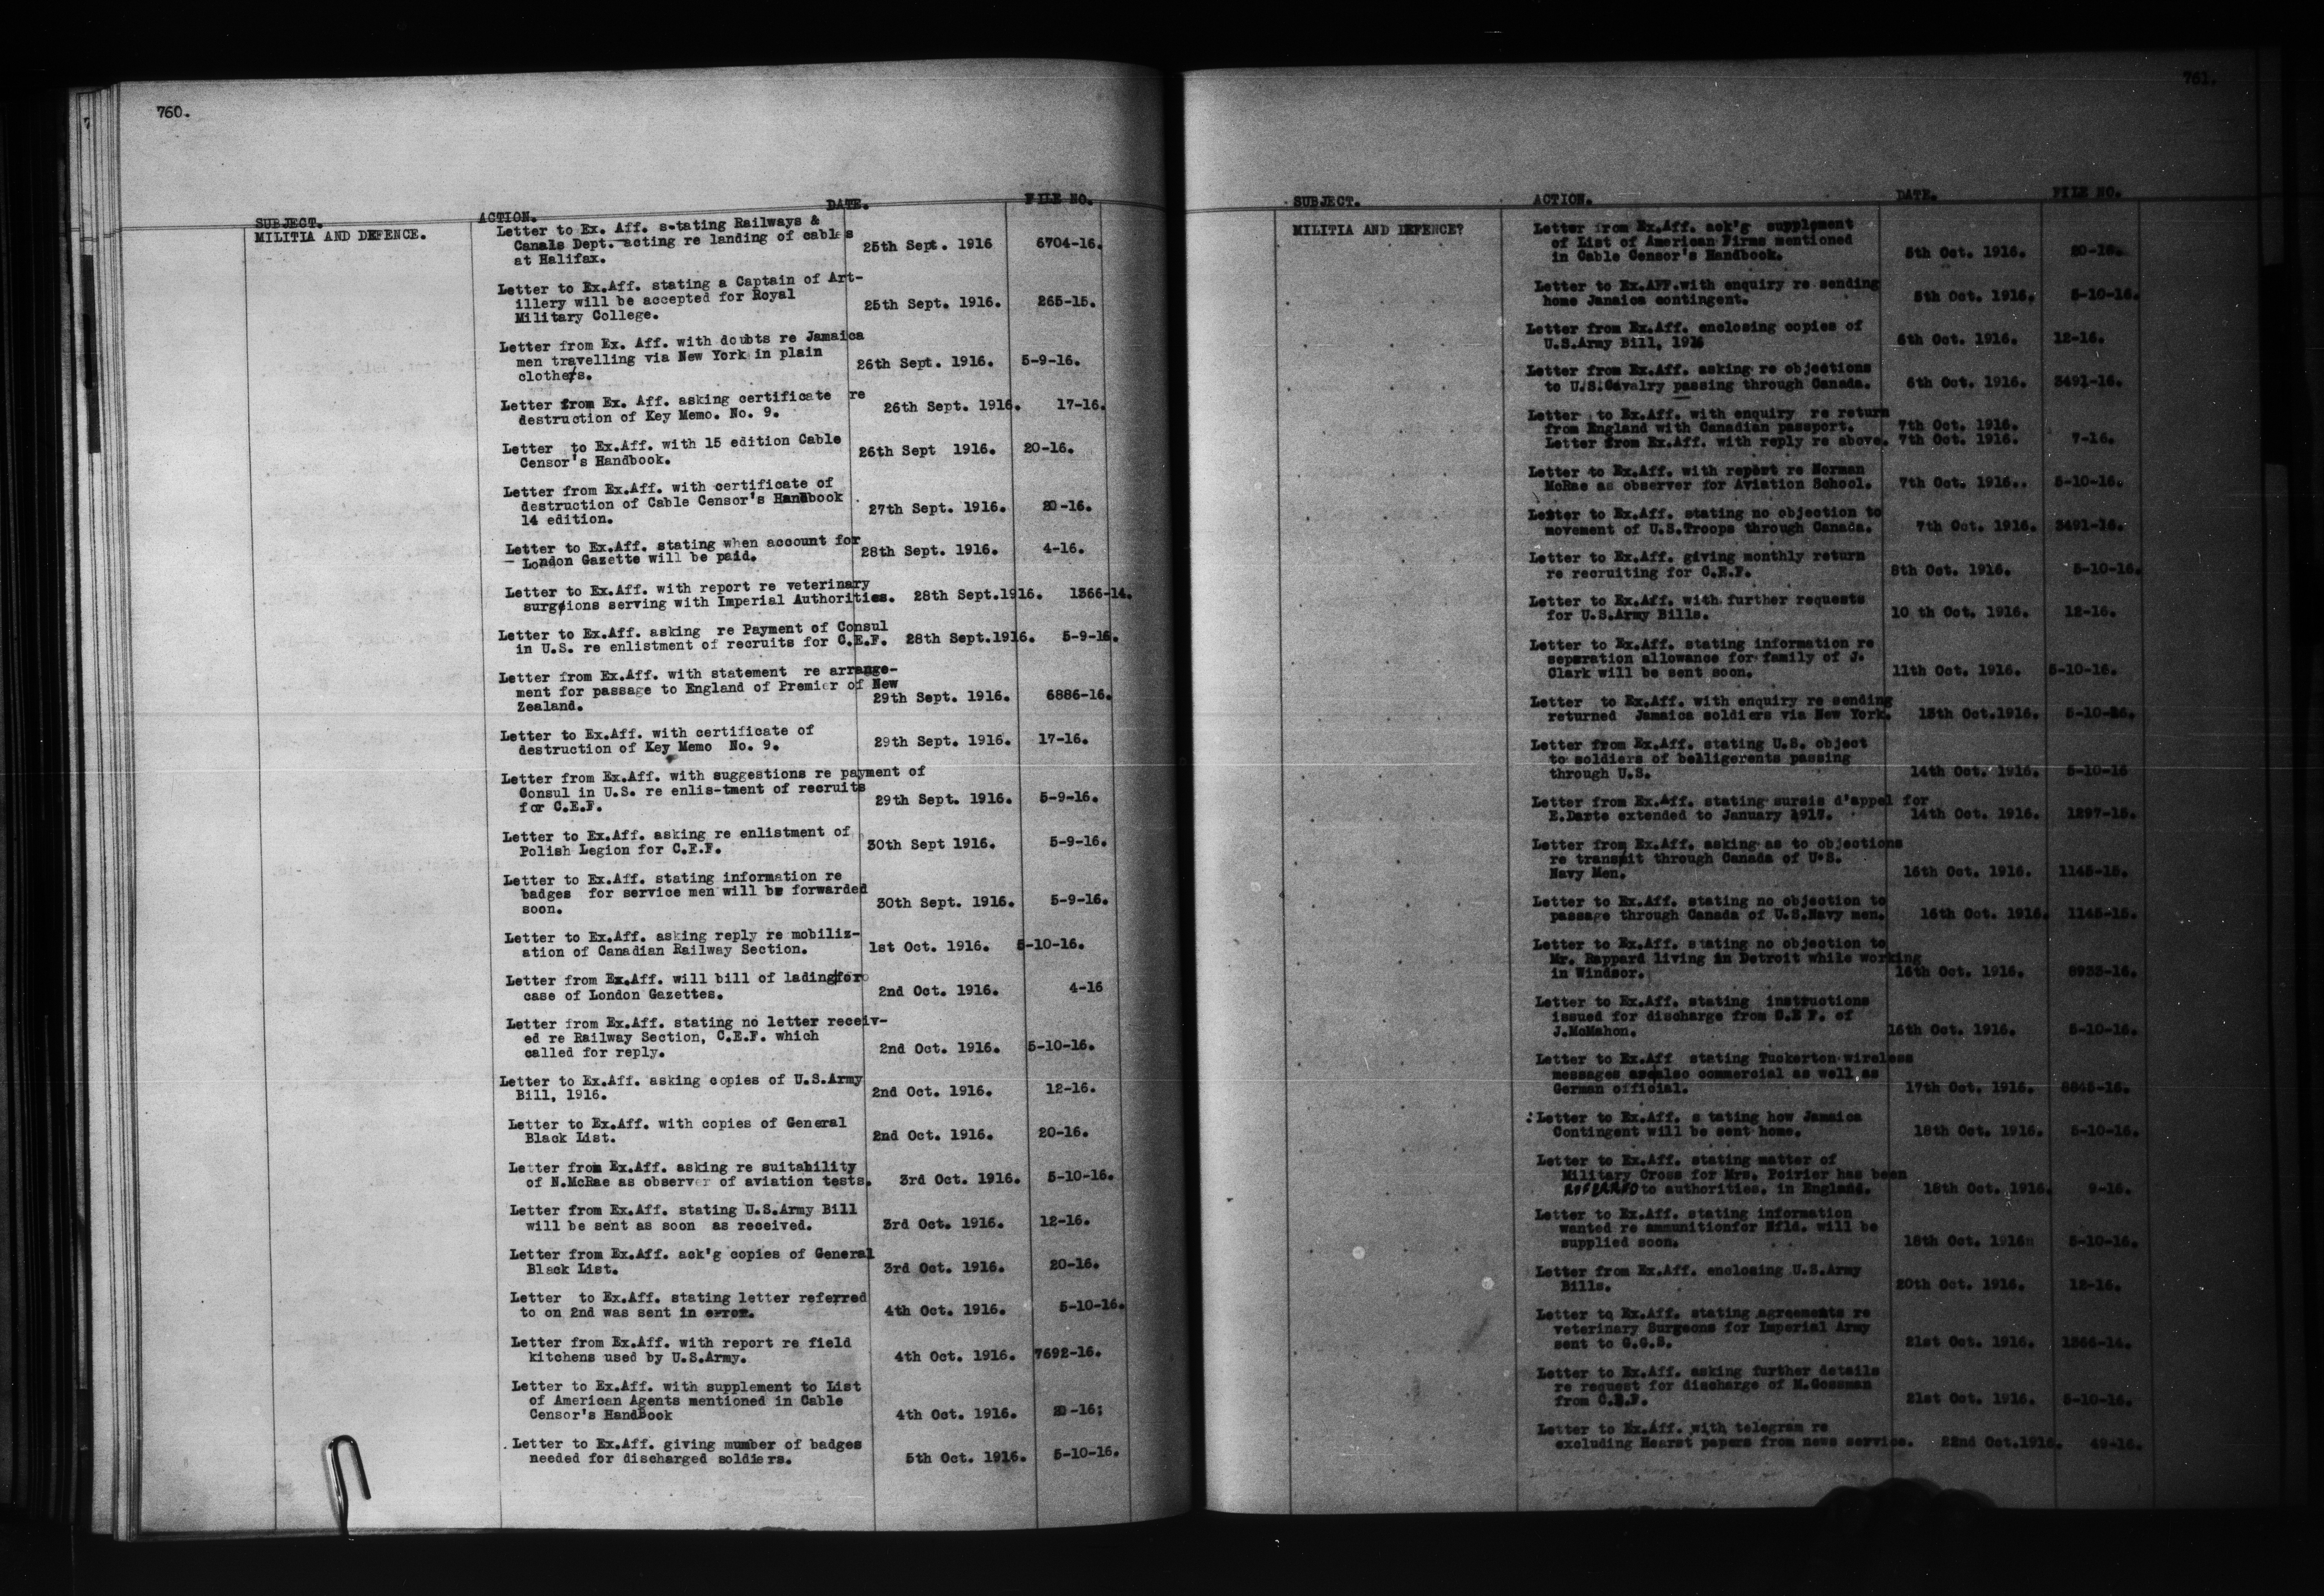 760.
SUBJECT. ACTION. DATE. FILE NO.
MILITIA AND DEFENCE.
Letter to Ex. Aff. s-tating Railways &
Canals Dept. acting re landing of cables
at Halifax. 25th Sept. 1916 6704-16.
Letter to Ex.Aff. stating a Captain of Art-
illery will be accepted for Royal
Military College. 25th Sept. 1916. 265-15.
Letter from Ex. Aff. with doubts re Jamaica
men travelling via New York in plain
clothes. 26th Sept. 1916. 5-9-16.
Letter from Ex. Aff. asking certificate re
destruction of Key Memo. No. 9. 26th Sept. 1916. 17-16.
Letter to Ex.Aff. with 15 edition Cable
Censor's Handbook. 26th Sept 1916. 20-16.
Letter from Ex.Aff. with certificate of
destruction of Cable Censor's Handbook
14 edition. 27th Sept. 1916. 20-16.
Letter to Ex.Aff. stating when account for
London Gazette will be paid. 28th Sept. 1916. 4-16.
Letter to Ex.Aff. with report re veterinary
surgeions serving with Imperial Authorities. 28th Sept.1916. 1366-14.
Letter to Ex.Aff. asking re Payment of Consul
in U.S. re enlistment of recruits for C.E.F. 28th Sept.1916. 5-9-16.
Letter from Ex.Aff. with statement re arrange-
ment for passage to England of Premier of New
Zealand. 29th Sept. 1916. 6886-16.
Letter to Ex.Aff. with certificate of
destruction of Key Memo No. 9. 29th Sept. 1916. 17-16.
Letter from Ex.Aff. with suggestions re payment of
Consul in U.S. re enlis-tment of recruits
for C.E.F. 29th Sept. 1916. 5-9-16.
Letter to Ex.Aff. asking re enlistment of
Polish Legion for C.E.F. 30th Sept 1916. 5-9-16.
Letter to Ex.Aff. stating information re
badges for service men will be forwarded
soon. 30th Sept. 1916. 5-9-16.
Letter to Ex.Aff. asking reply re mobiliz-
ation of Canadian Railway Section. 1st Oct. 1916. 5-10-16.
Letter from Ex.Aff. will bill of lading for
case of London Gazettes. 2nd Oct. 1916. 4-16
Letter from Ex.Aff. stating no letter receiv-
ed re Railway Section, C.E.F. which
called for reply. 2nd Oct. 1916. 5-10-16.
Letter to Ex.Aff. asking copies of U.S.Army
Bill, 1916. 2nd Oct. 1916. 12-16.
Letter to Ex.Aff. with copies of General
Black List. 2nd Oct. 1916. 20-16.
Letter from Ex.Aff. asking re suitability
of N.McRae as observer of aviation tests. 3rd Oct. 1916. 5-10-16.
Letter from Ex.Aff. stating U.S.Army Bill
will be sent as soon as received. 3rd Oct. 1916. 12-16.
Letter from Ex.Aff. ack'g copies of General
Black List. 3rd Oct. 1916. 20-16.
Letter to Ex.Aff. stating letter referred
to on 2nd was sent in error. 4th Oct. 1916. 5-10-16.
Letter from Ex.Aff. with report re field
kitchens used by U.S.Army. 4th Oct. 1916. 7692-16.
Letter to Ex.Aff. with supplement to List
of American Agents mentioned in Cable
Censor's Handbook 4th Oct. 1916. 20-16;
Letter to Ex.Aff. giving number of badges
needed for discharged soldiers. 5th Oct. 1916. 5-10-16.
761.
SUBJECT. ACTION. DATE. FILE NO.
MILITIA AND DEFENCE?
Letter from Ex.Aff. ack'g supplement
of List of American Firms mentioned
in Cable Censor's Handbook. 5th Oct. 1916. 20-16.
Letter to Ex.Aff.with enquiry re sending
home Jamaica contingent. 5th Oct. 1916. 5-10-16.
Letter from Ex.Aff. enclosing copies of
U.S.Army Bill, 1916 6th Oct. 1916. 12-16.
Letter from Ex.Aff. asking re objections
to U.S.Cavalry passing through Canada. 6th Oct. 1916. 3491-16.
Letter to Ex.Aff. with enquiry re return
from England with Canadian passport. 7th Oct. 1916.
Letter from Ex.Aff. with reply re above. 7th Oct. 1916. 7-16.
Letter to Ex.Aff. with report re Norman
McRae as observer for Aviation School. 7th Oct. 1916.. 5-10-16.
Letter to Ex.Aff. stating no objection to
movement of U.S.Troops through Canada. 7th Oct. 1916. 3491-16.
Letter to Ex.Aff. giving monthly return
re recruiting for C.E.F. 8th Oct. 1916. 5-10-16.
Letter to Ex.Aff. with further requests
for U.S.Army Bills. 10 th Oct. 1916. 12-16.
Letter to Ex.Aff. stating information re
separation allowance for family of J.
Clark will be sent soon. 11th Oct. 1916. 5-10-16.
Letter to Ex.Aff. with enquiry re sending
returned Jamaica soldiers via New York. 13th Oct.1916. 5-10-16.
Letter from Ex.Aff. stating U.S. object
to soldiers of belligerents passing
through U.S. 14th Oct. 1916. 5-10-16
Letter from Ex.Aff. stating sursis d'appel for
E.Darte extended to January 1917. 14th Oct. 1916. 1297-15.
Letter from Ex.Aff. asking as to objections
re transmit through Canada of U.S.
Navy Men. 16th Oct. 1916. 1145-15.
Letter to Ex.Aff. stating no objection to
passage through Canada of U.S.Navy men. 16th Oct. 1916. 1145-15.
Letter to Ex.Aff. stating no objection to
Mr. Rappard living in Detroit while working
in Windsor. 16th Oct. 1916. 8933-16.
Letter to Ex.Aff. stating instructions
issued for discharge from C.E F. of
J.McMahon. 16th Oct. 1916. 5-10-16.
Letter to Ex.Aff stating Tuckerton wireless
messages are also commercial as well as
German official. 17th Oct. 1916.
Letter to Ex.Aff. s tating how Jamaica
Contingent will be sent home. 18th Oct. 1916. 5-10-16.
Letter to Ex.Aff. stating matter of
Military Cross for Mrs. Poirier has been
REFERRED to authorities. in England. 18th Oct. 1916. 9-16.
Letter to Ex.Aff. stating information
wanted re ammunitionfor Nfld. will be
supplied soon. 18th Oct. 1916 5-10-16.
Letter from Ex.Aff. enclosing U.S.Army
Bills. 20th Oct. 1916. 12-16.
Letter to Ex.Aff. stating agreements re
veterinary Surgeons for Imperial Army
sent to G.G.S. 21st Oct. 1916. 1366-14.
Letter to Ex.Aff. asking further details
re request for discharge of M.Gossman
from C.E.F. 21st Oct. 1916. 5-10-16.
Letter to Ex.Aff. with telegram re
excluding Hearst papers from news service. 22nd Oct.1916. 49-16.